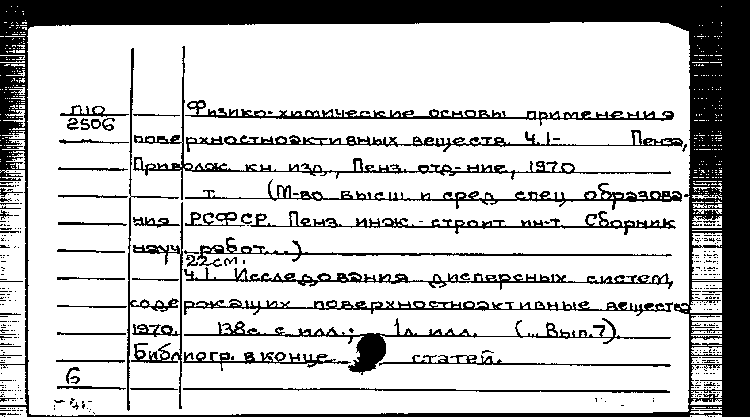 П10
2506
Физико-химические основы применения
поверхностноактивных веществ. Ч.1- Пенза,
Приволж. кн. изд., Пенз. отд-ние, 1970
т. (М-во высш. и сред. спец. образова-
ния РСФСР. Пенз. инж.-строит. ин-т. Сборник
науч. работ...).
22см.
Ч.1. Исследования дисперсных систем,
содержащих поверхностноактивные вещества
1970. 138с. с илл.; 1л. илл. (... Вып.7).
Библиогр. в конце статей.
6